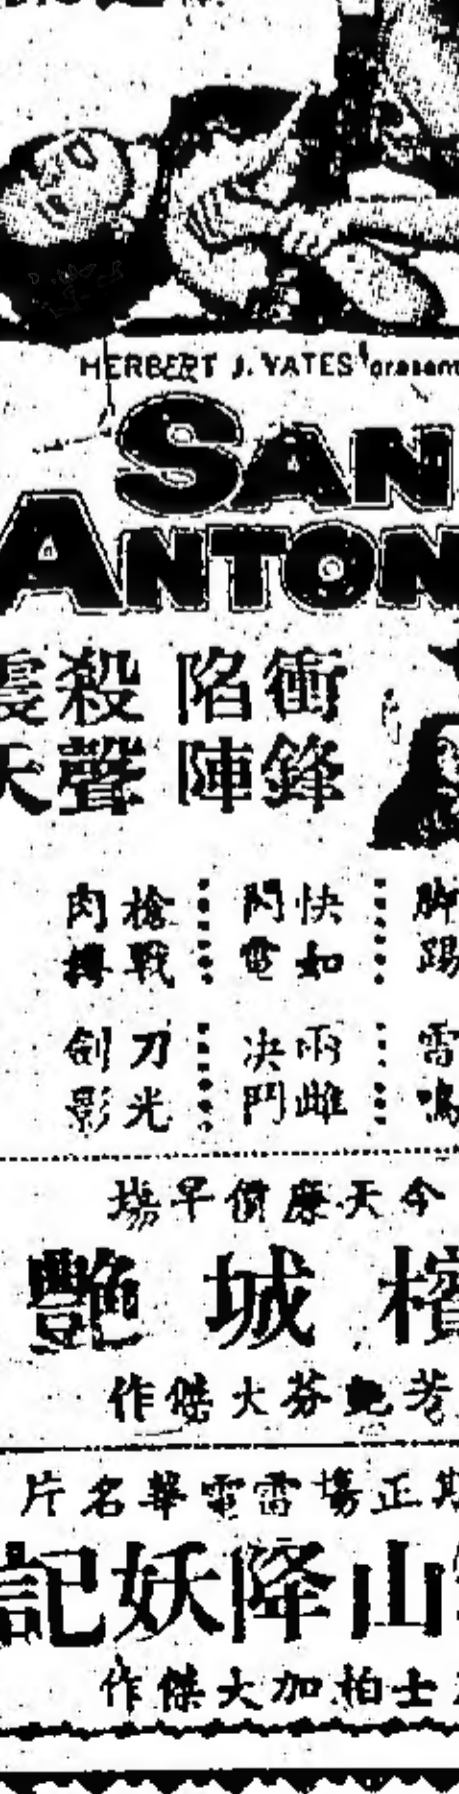 HERBERT J. YATES present
SAN
ANTON
衝鋒
陷陣
殺聲
震天
脚踢
快如
閃電
槍戰
肉搏
雷鳴
兩雌
决鬥
刀光
劍影
今天廉價早場
檳城艷
芳艶芬大傑作
期正場雷電華名片
山降妖記
士柏加大傑作